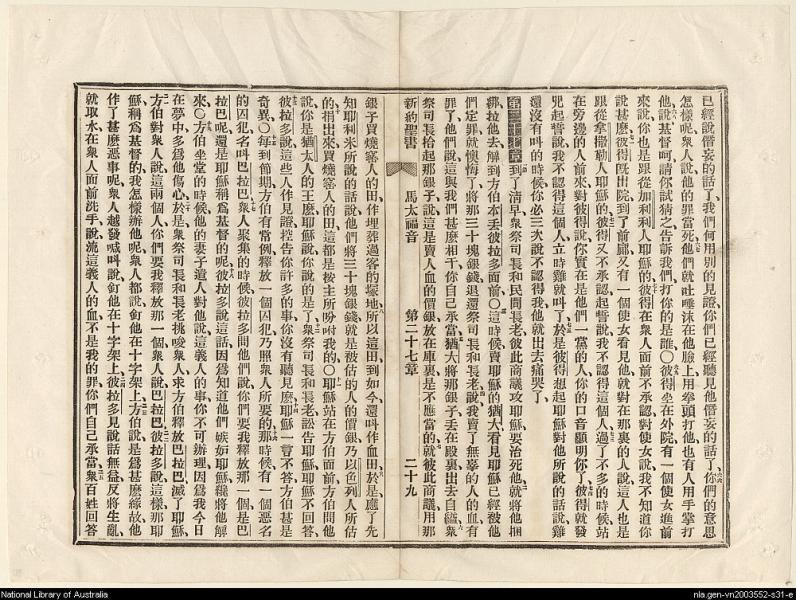 已經說僭妄的話了我們何用別的見證你們已經聽見他僭妄的話了你們的意思
怎樣呢衆人說他的罪當死他們就吐唾沫在他臉上用拳頭打他也有人用手掌打
他說基督呵請你試猜之告訴我們打你的是誰〇彼得坐在外院有一個使女進前
來說你也是跟從加利利人耶穌的彼得在衆人面前不承認對使女說我不知道你
說甚麼彼得旣出院到了前廊又有一個使女看見他就對在那裏的人說這人也是
跟從拿撒勒人耶穌的彼得又不承認起誓說我不認得這個人過了不多的時候站
在旁邊的人前來對彼得說你實在是他們一黨的人你的口音顯明你了彼得就發
咒起誓說我不認得這個人立時雞就叫了於是彼得想起耶穌對他所說的話說雞
還沒有叫的時候你必三次說不認得我他就出去痛哭了
第二十七章到了清早衆祭司長和民間長老彼此商議攻耶穌要治死他就將他捆
綁拉他去解到方伯本丟彼拉多面前〇這時候賣耶穌的猶大看見耶穌已經被他
們定罪就懊悔了將那三十塊銀錢退還祭司長和長老說我賣了無辜的人的血有
罪了他們說這與我們甚麼相干你自己承當猶大將那銀子丢在殿裏出去自縊衆
祭司長拾起那銀子說這是賣人血的價銀放在庫裏是不應當的就彼此商議用那
新約聖書 馬太福音 第二十七章 二十九
銀子買燒窰人的田作埋葬過客的塚地所以這田到如今還叫作血田於是應了先
知耶利米所說的話說他們將三十塊銀錢就是被估的人的價銀乃以色列人所估
的捐出來買燒窰人的田這都是按主所吩咐我的〇耶穌站在方伯面前方伯問他
說你是猶太人的王麼耶穌說你說的是了衆祭司長和長老訟告耶穌耶穌不回答
彼拉多說這些人作見證控告你許多的事你沒有聽見麼耶穌一言不答方伯甚是
奇異〇每到節期方伯有常例釋放一個囚犯乃照衆人所要的那時候有一個惡名
的囚犯名叫巴拉巴衆人聚集的時候彼拉多問他們說你們要我釋放那一個是巴
拉巴呢還是耶穌稱爲基督的呢彼拉多說這話因爲知道他們嫉妬耶穌纔將他解
來〇方伯坐堂的時候他的妻子遣人對他說這義人的事你不可辦理因爲我今日
在夢中多爲他傷心於是衆祭司長和長老挑唆衆人求方伯釋放巴拉巴滅了耶穌
方伯對衆人說這兩個人你們要我釋放那一個衆人說巴拉巴彼拉多說這樣那耶
穌稱爲基督的我怎樣辦他呢衆人都說釘他在十字架上方伯說是爲甚麼緣故他
作了甚麼惡事呢衆人越發喊叫說釘他在十字架上彼拉多見說話無益反將生亂
就取水在衆人面前洗手說流這義人的血不是我的罪你們自己承當衆百姓回答
National Library of Australia
nla.gen-vn2003552-s31-e